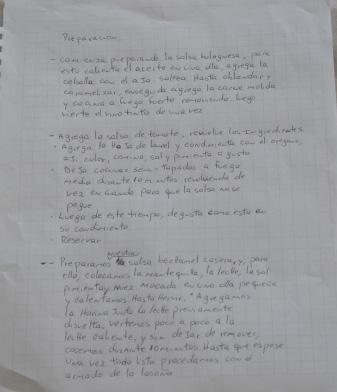 Preparacion
- comienza preparando la salsa bolognesa, para
esto calienta el aceite en una olla, agrega la
cebolla con el ajo, saltea Hasta ablandar y
caramelizar, enseguida agrega la carne molida
y cocina a fuego fuerte removiendo, luego
vierte el vino tinto de una vez
- Agrega la salsa de tomate, revuelve los ingredientes.
- Agrega la Hoja de laurel y condimenta con el orégano,
ají color, comino, sal y pimienta a gusto
- Deja cocinar semi-tapadas a fuego
medio durante 10 minutos revolviendo de
vez en cuando para que la salsa no se
pegue
- Luego de este tiempo, degusta como esta en
su condimento.
Reservar
- Preparamos nuestra salsa bechamel casera y, para
ello, colocamos la mantequilla, la leche, la sal
pimienta y nuez moscada en una olla pequeña
y calentamos Hasta Hervir. Agregamos
la Harina Junto la leche previamente
disuelta, vertemos poco a poco a la
leche caliente, y sin dejar de remover,
cocemos durante 10 minutos Hasta que espese
una vez todo listo procedamos con el
armado de la lasaña